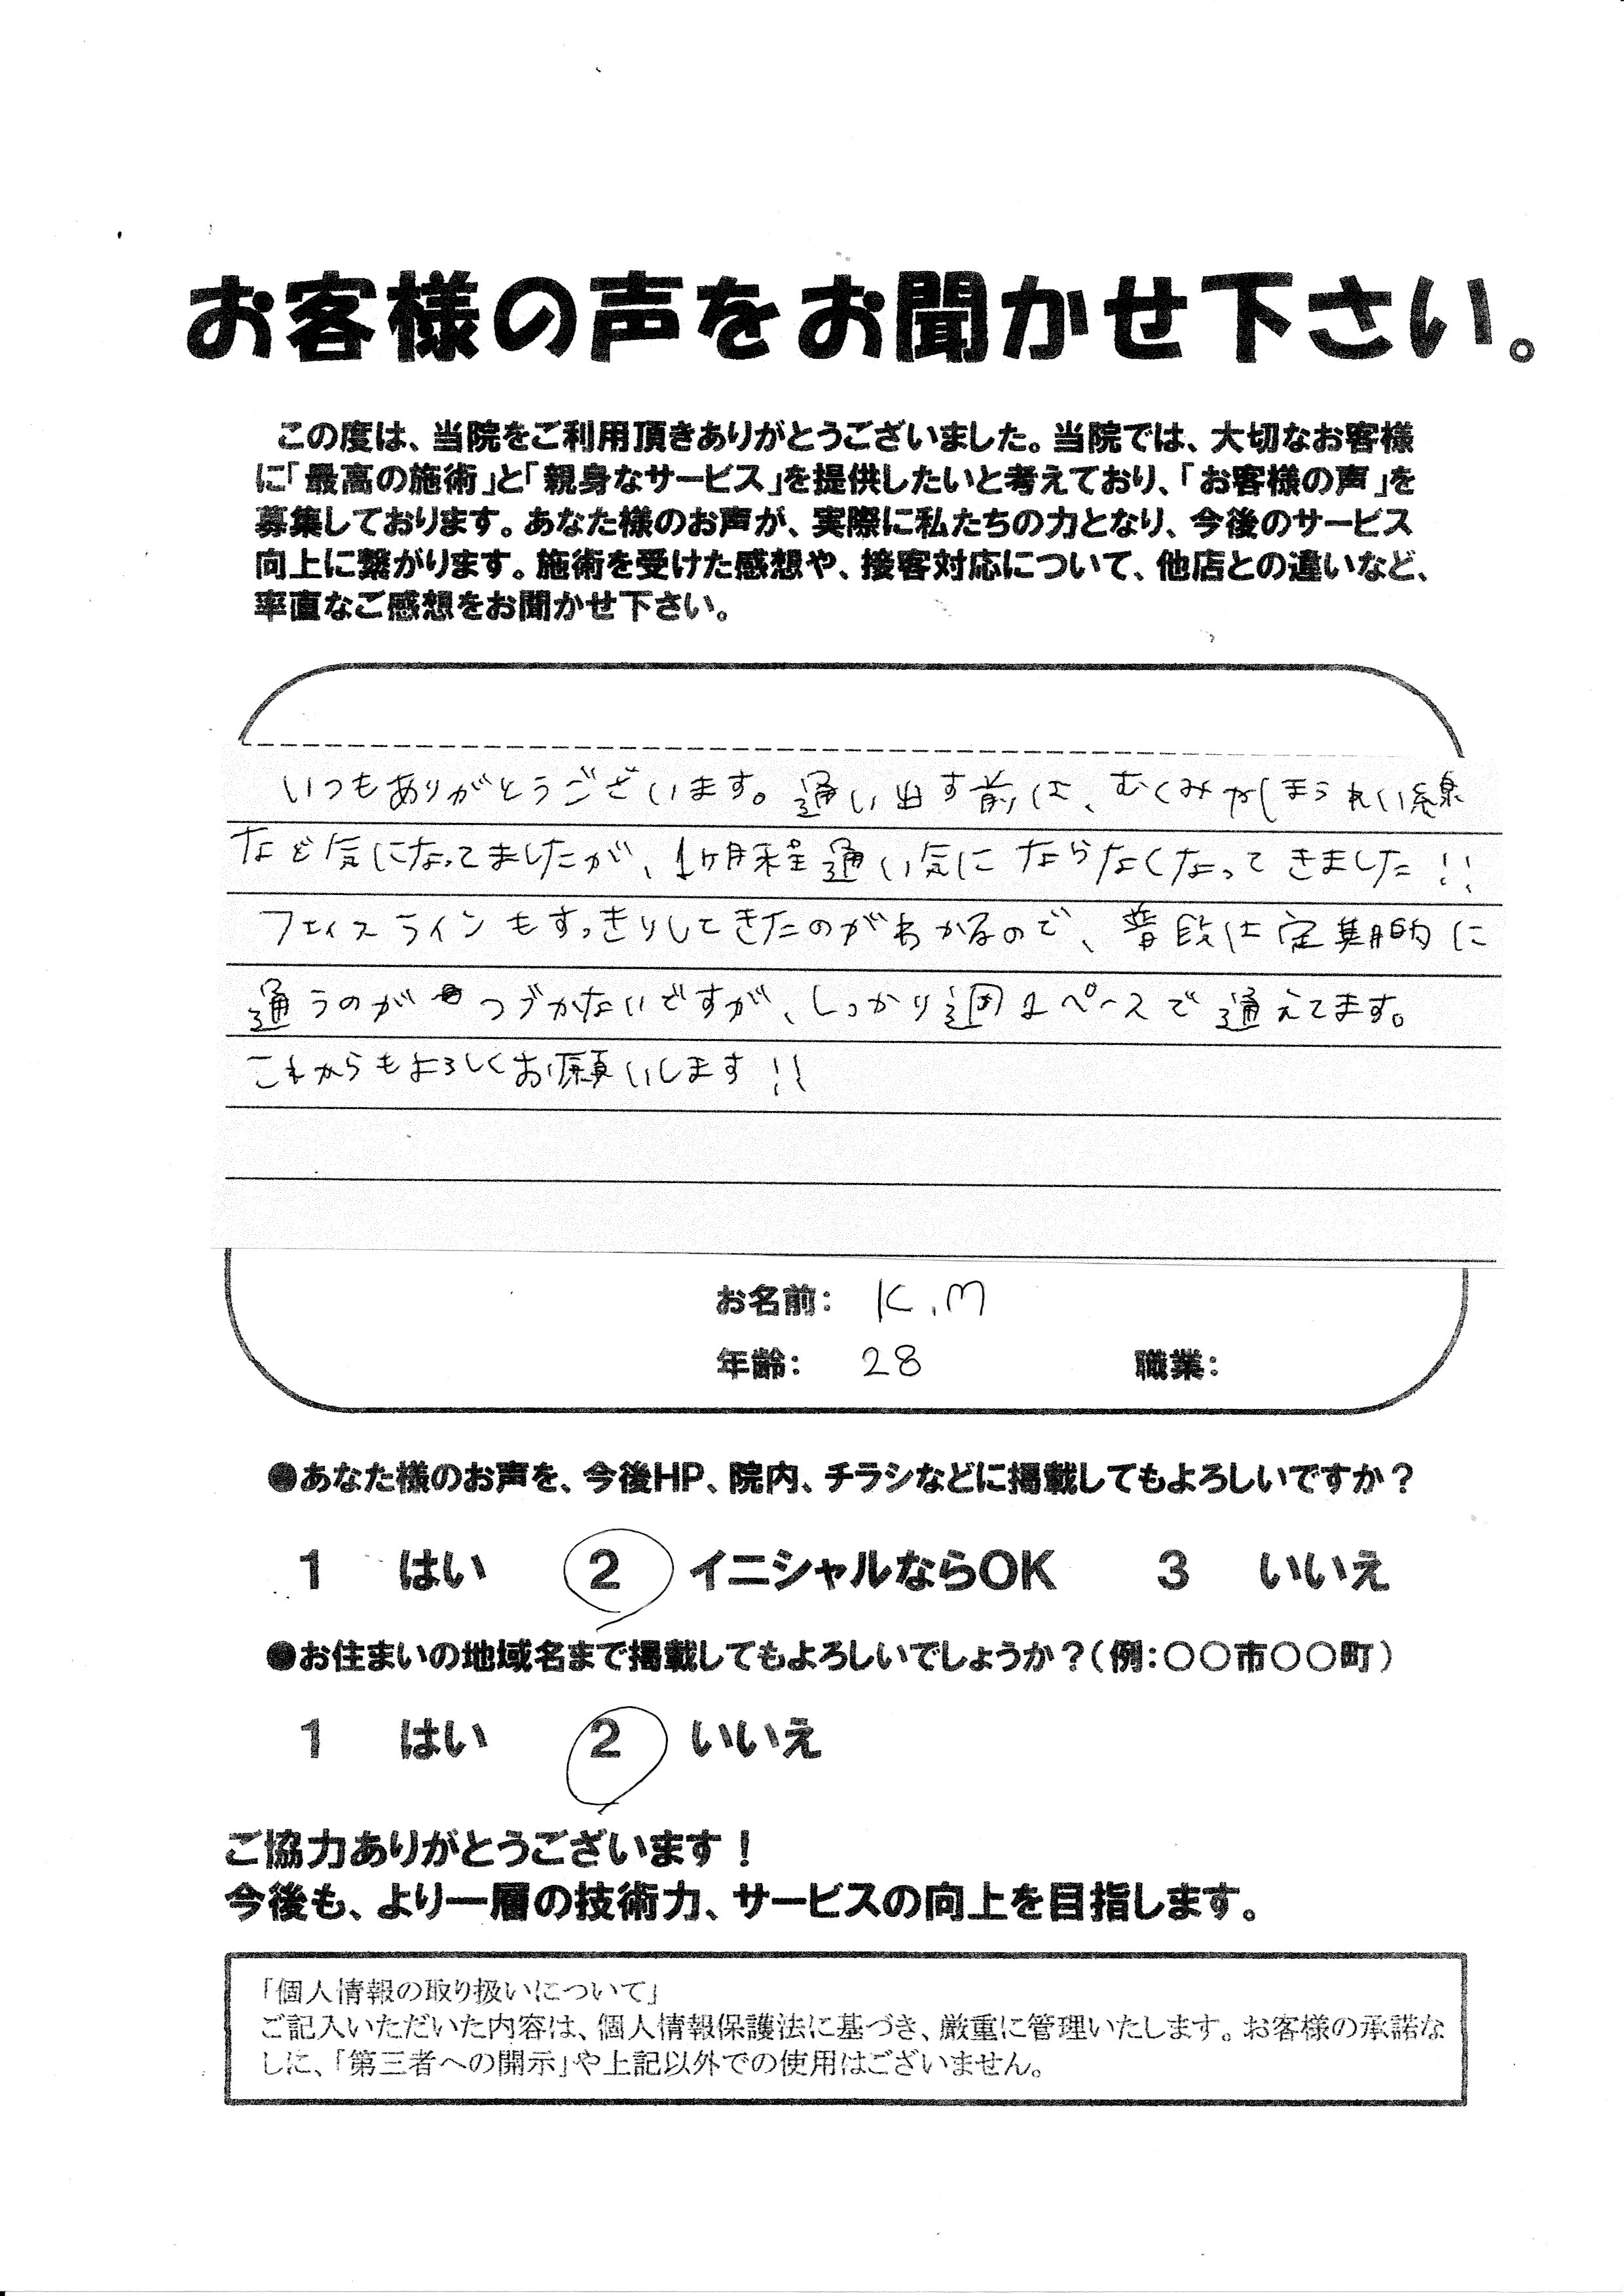 お客様の声をお聞かせ下さい。
この度は、当院をご利用頂きありがとうございました。当院では、大切なお客様
に「最高の施術」と「親身なサービス」を提供したいと考えており、「お客様の声」を
募集しております。あなた様のお声が、実際に私たちの力となり、今後のサービス
向上に繋がります。施術を受けた感想や、接客対応について、他店との違いなど、
率直なご感想をお聞かせ下さい。
いつもありがとうございます。通い出す前は、むくみやほうれい線
など気になってましたが、1ヶ月程通い気にならなくなってきました!!
フェイスラインもすっきりしてきたのがわかるので、普段は定期的に
通うのがつづかないですが、しっかり週1ペースで通えてます。
これからもよろしくお願いします!!
お名前: K.M
年齢: 28 職業:
●あなた様のお声を、今後HP、院内、チラシなどに掲載してもよろしいですか?
1 はい 2 イニシャルならOK 3 いいえ
●お住まいの地域名まで掲載してもよろしいでしょうか?(例:〇〇市〇〇町)
1 はい 2 いいえ
ご協力ありがとうございます!
今後も、より一層の技術力、サービスの向上を目指します。
「個人情報の取り扱いについて」
ご記入いただいた内容は、個人情報保護法に基づき、厳重に管理いたします。お客様の承諾な
しに、「第三者への開示」や上記以外での使用はございません。